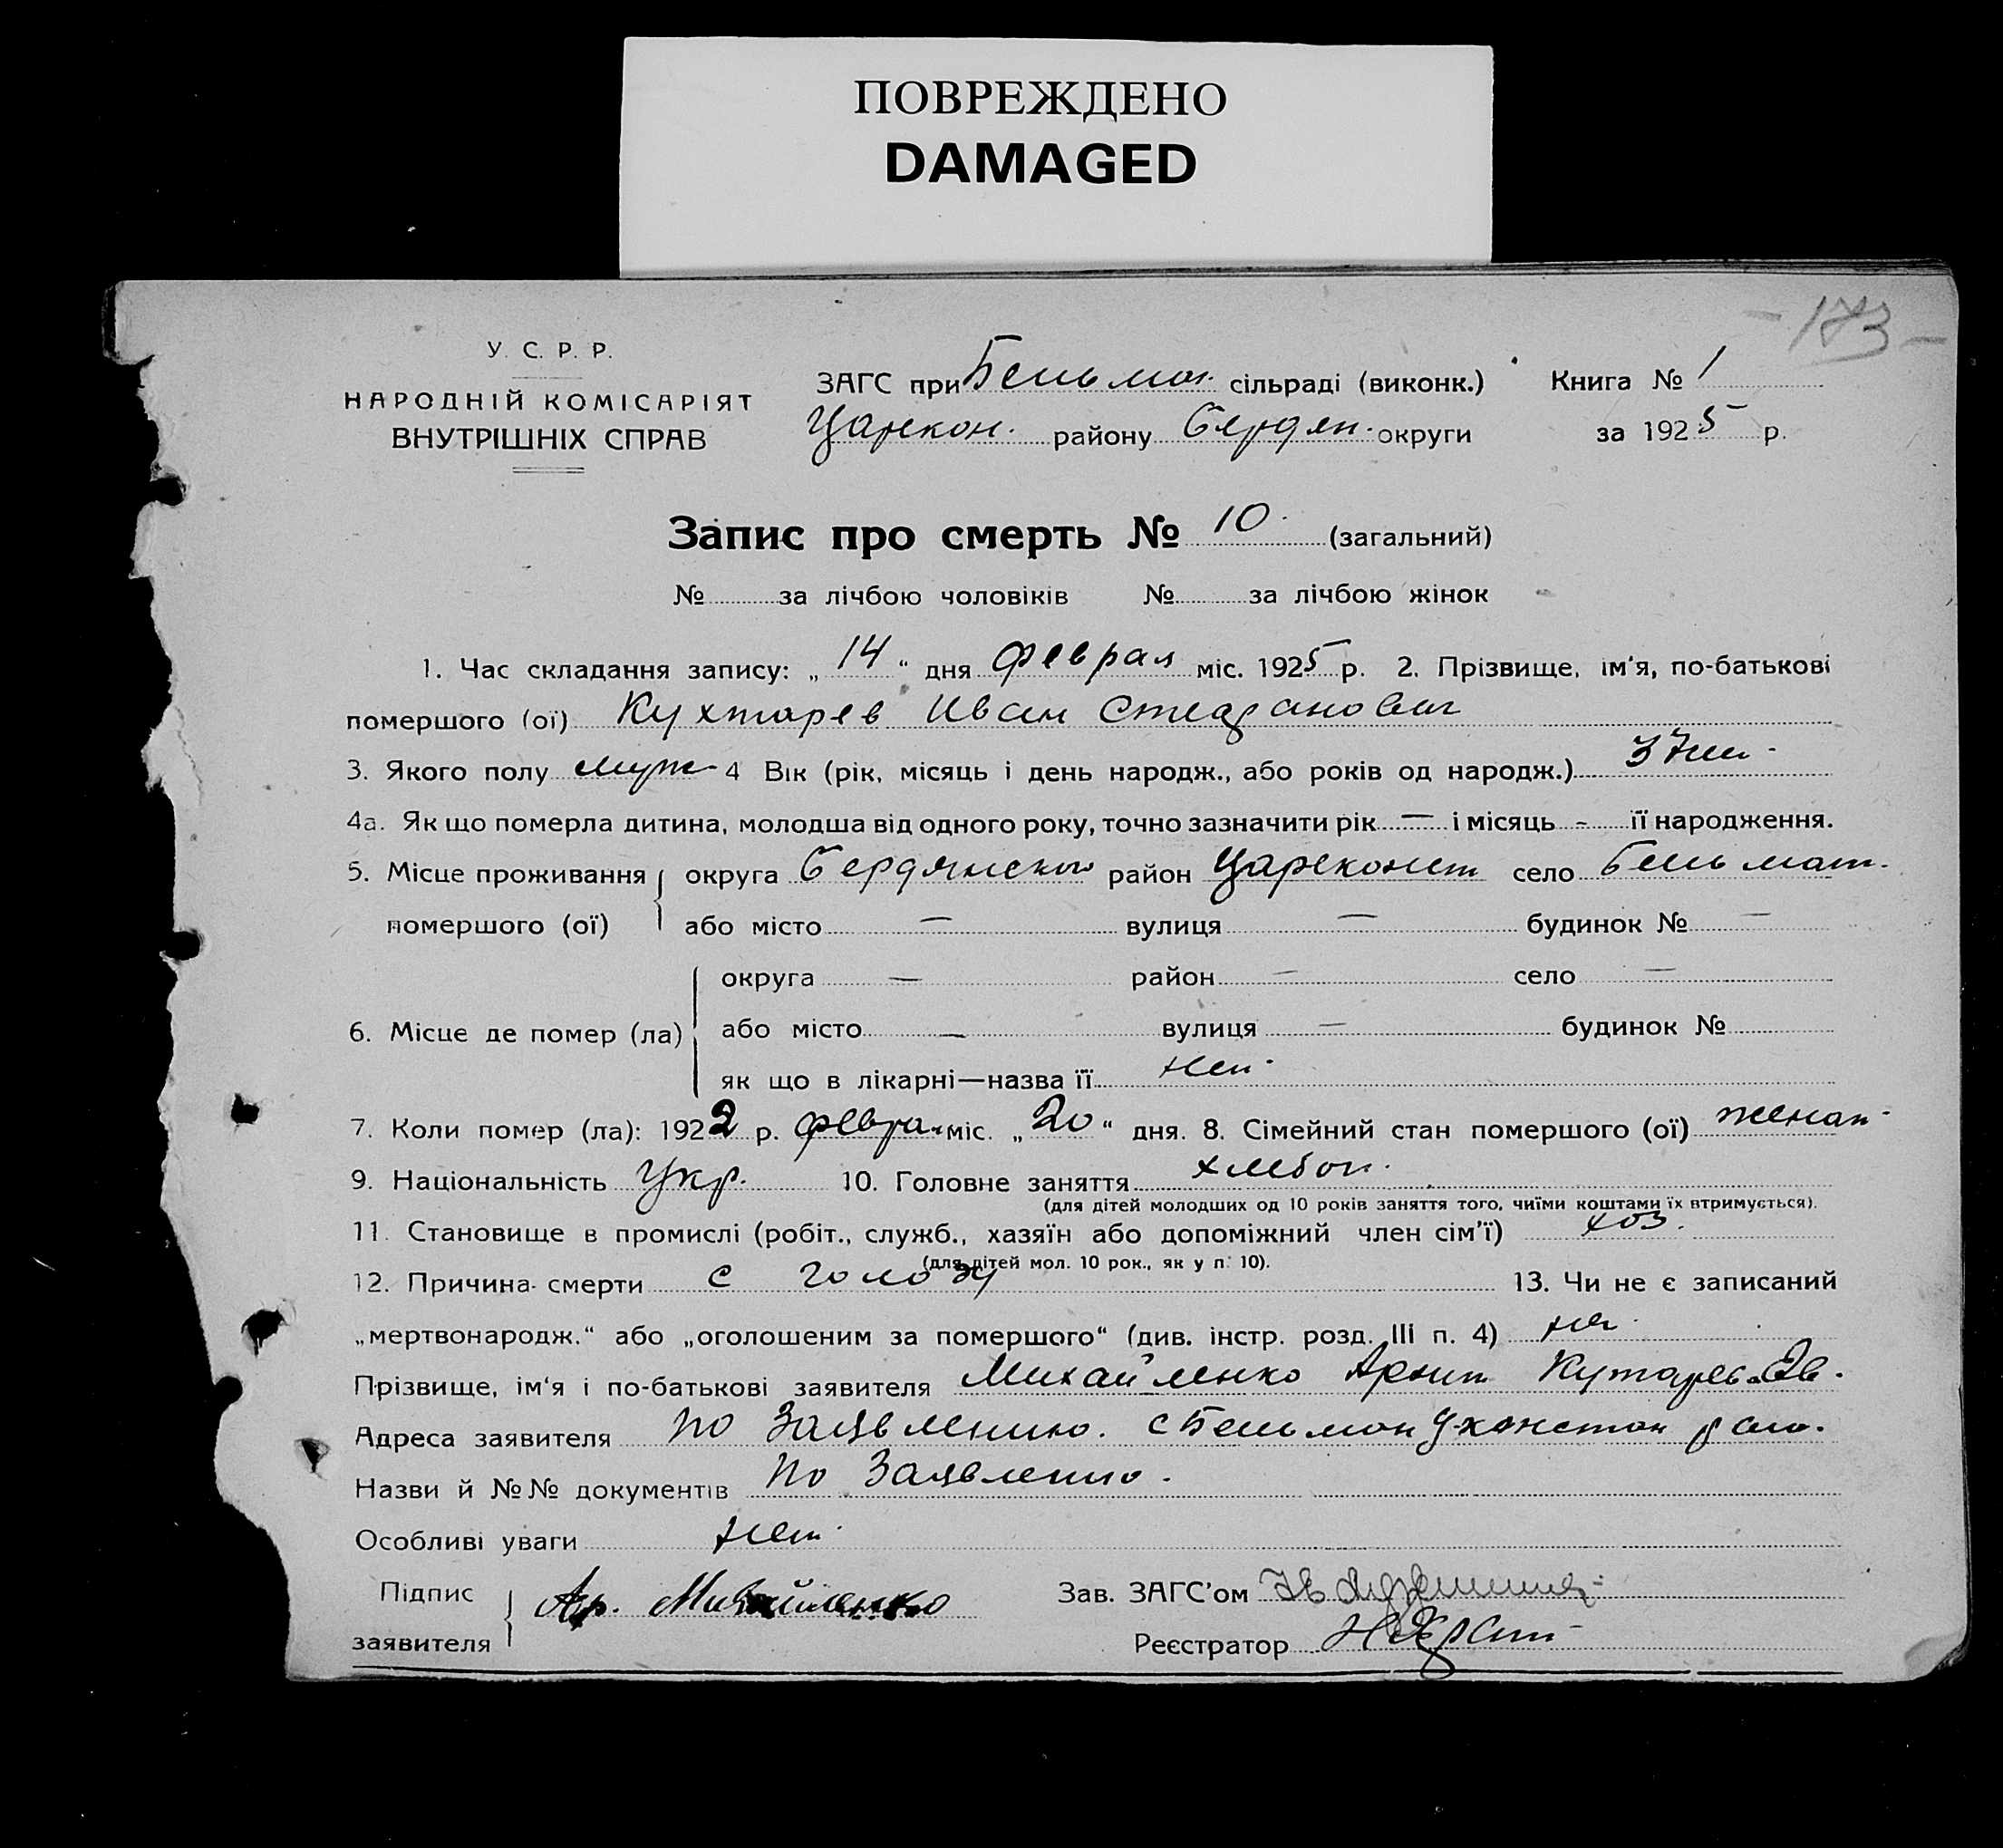 ПОВРЕЖДЕНО
DAMAGED
- 173 -
У. С. Р. Р.
НАРОДНІЙ КОМІСАРІЯТ
ВНУТРІШНІХ СПРАВ
ЗАГС при Бельман. сільраді (виконк.)
Царекон. району Бердян. округи
Книга № 1
за 1925 р.
Запис про смерть № 10. (загальний)
№ за лічбою чоловіків № за лічбою жінок
1. Час складання запису: „ 14 “ дня Феврал міс. 1925 р. 2. Прізвище, ім'я, по-батькові
помершого (ої) Кухтарев Иван Стефанович
3. Якого полу муж 4 Вік (рік, місяць і день народж., або років од народж.) 37
4а. Як що померла дитина, молодша від одного року, точно зазначити рік — і місяць - її народження.
5. Місце проживання округа Бердянской район Цареконст село Бельман.
помершого (ої) або місто — вулиця — будинок № —
округа — район — село —
6. Місце де помер (ла) або місто — вулиця — будинок №
як що в лікарні—назва її нет
7. Коли помер (ла): 1922 р. февра. міс. „ 20 “ дня. 8. Сімейний стан помершого (ої) женат
9. Національність Укр. 10. Головне заняття хлебоп.
(для дітей молодших од 10 років заняття того, чиїми коштами їх втримується).
11. Становище в промислі (робіт., служб., хазяїн або допоміжний член сім'ї) хоз.
(для дітей мол. 10 рок., як у п. 10).
12. Причина смерти с голоду 13. Чи не є записаний
„мертвонародж.“ або „оголошеним за помершого“ (див. інстр. розд. III п. 4) нет
Прізвище, ім'я і по-батькові заявителя Михайленко Архип Кутарев Ив.
Адреса заявителя по Заявлению. с Бельман
Назви й №№ документів по Заявлению.
Особливі уваги нет
Підпис Ар. Михайленко Зав. ЗАГС'ом
заявителя Реєстратор